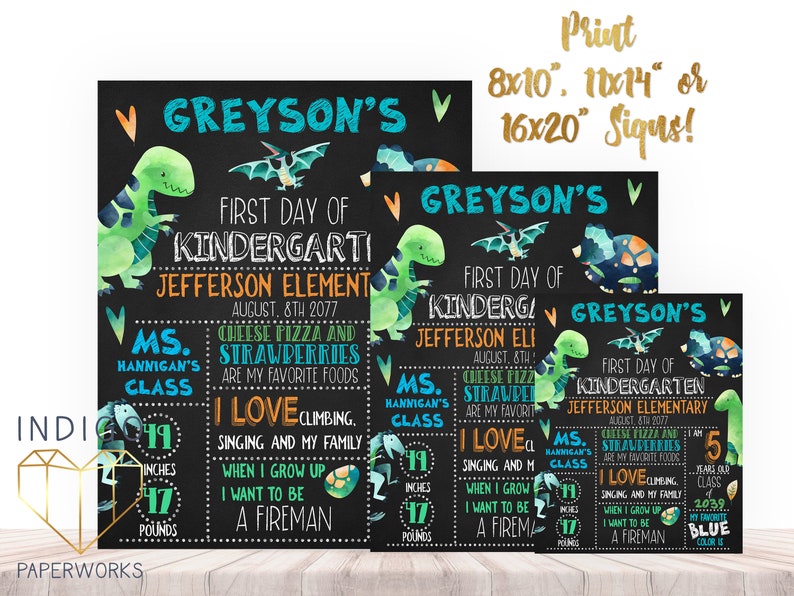 Print
8x10", 11x14" or
16x20" Signs!
GREYSON'S
FIRST DAY OF
KINDERGARTE
JEFFERSON ELEMENTA
AUGUST, 8TH 2077
MS.
HANNIGAN'S
CLASS
CHEESE PIZZA AND
STRAWBERRIES
ARE MY FAVORITE FOODS
49
INCHES
47
POUNDS
I LOVE CLIMBING,
SINGING AND MY FAMILY
WHEN I GROW UP
I WANT TO BE
A FIREMAN
GREYSON'S
FIRST DAY OF
KINDERGA
JEFFERSON ELEM
AUGUST, 8TH
MS.
HANNIGAN'S
CLASS
CHEESE PIZZ
STRAWBER
ARE MY FAVOR
49
INCHES
47
POUNDS
I LOVE
SINGING AND M
WHEN I GROW
I WANT TO B
A FI
GREYSON'S
FIRST DAY OF
KINDERGARTEN
JEFFERSON ELEMENTARY
AUGUST, 8TH 2077
MS.
HANNIGAN'S
CLASS
CHEESE PIZZA AND
STRAWBERRIES
ARE MY FAVORITE FOODS
I AM 5
YEARS OLD
CLASS
of
2039
49
INCHES
47
POUNDS
I LOVE CLIMBING,
SINGING AND MY FAMILY
WHEN I GROW UP
I WANT TO BE
A FIREMAN
MY FAVORITE
BLUE
COLOR IS
INDIGO
PAPERWORKS